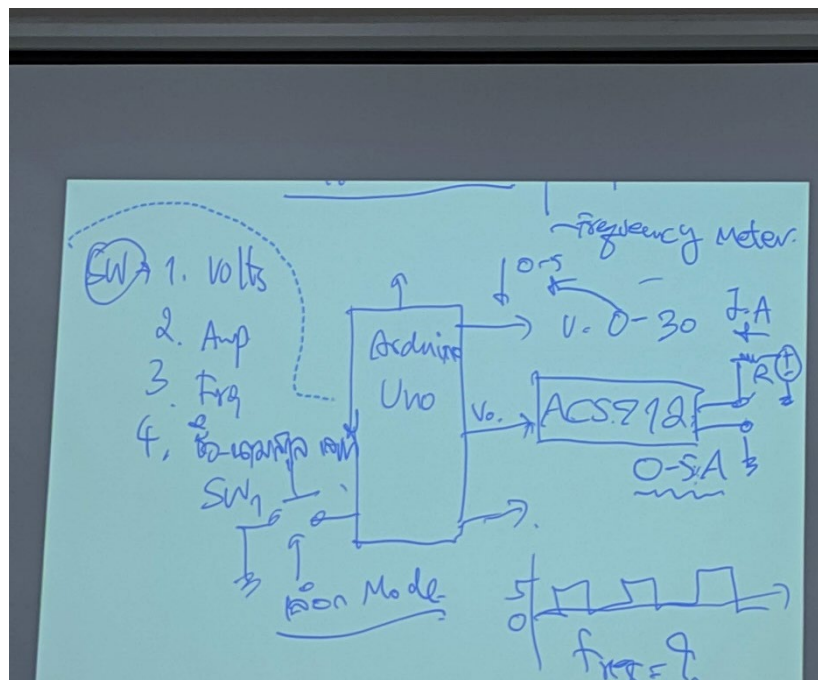 Frequency Meter.
SW → 1. Volts
2. Amp
3. Frq
4. ชื่อ-นามสกุล
SW1
เลือก Mode
Arduino
Uno
0-5
V. 0-30
I.A
R
Vo.
ACS712
0-5A
5
0
freq = ?